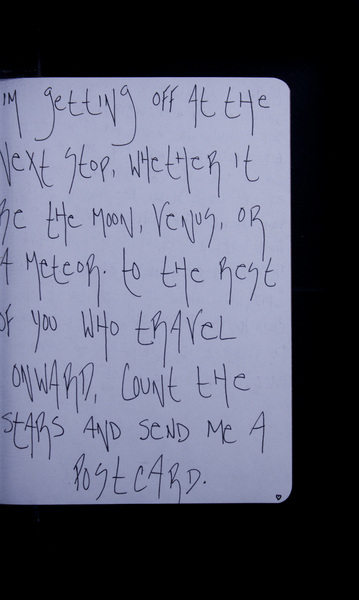 IM getting OFF At tHe
Next Stop, WHetHer It
Be tHe MOON, VENUS, OR
A Meteor. to tHe Rest
OF YOU WHO tRAVEL
ONWARD, COUNt tHe
StARS AND SEND Me A
POStCARD.